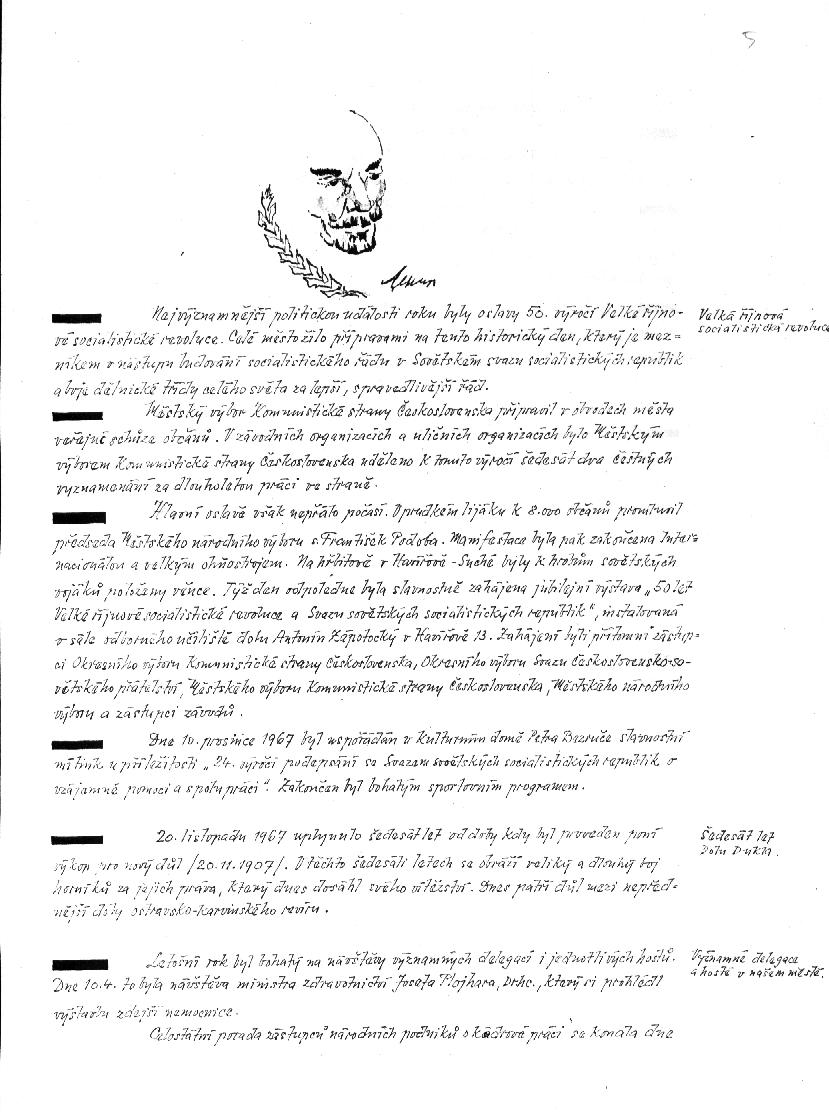 5
Ленин
Nejvýznamnější politickou událostí roku byly oslavy 50. výročí Velké říjno-
vé socialistické revoluce. Celé město žilo přípravami na tento historický den, který je mez-
níkem v nástupu budování socialistického řádu v Sovětském svazu socialistických republik
a boje dělnické třídy celého světa za lepší, spravedlivější řád.
Velká říjnová
socialistická revoluce
Městský výbor Komunistické strany Československa připravil v obvodech města
veřejné schůze občanů. V závodních organizacích a uličních organizacích bylo Městským
výborem Komunistické strany Československa uděleno k tomuto výročí šedesát dva čestných
vyznamenání za dlouholetou práci ve straně.
Hlavní oslavě však nepřálo počasí. V prudkém lijáku k 8.000 občanů promluvil
předseda Městského národního výboru s. František Podoba. Manifestace byla pak zakončena Inter-
nacionálou a velkým ohňostrojem. Na hřbitově v Havířově-Suché byly k hrobům sovětských
vojáků položeny věnce. Týž den odpoledne byla slavnostně zahájena jubilejní výstava „50 let
Velké říjnové socialistické revoluce a Svazu sovětských socialistických republik", instalovaná
v sále odborného učiliště dolu Antonín Zápotocký v Havířově 13. Zahájení byli přítomni zástup-
ci Okresního výboru Komunistické strany Československa, Okresního výboru Svazu Československo-so-
větského přátelství, Městského výboru Komunistické strany Československa, Městského národního
výboru a zástupci závodů.
Dne 10. prosince 1967 byl uspořádán v Kulturním domě Petra Bezruče slavnostní
mítink u příležitosti „24. výročí podepsání se Svazem sovětských socialistických republik o
vzájemné pomoci a spolupráci". Zakončen byl bohatým sportovním programem.
20. listopadu 1967 uplynulo šedesát let od doby kdy byl proveden první
výkop pro nový důl /20.11.1907/. V těchto šedesáti letech se obráží veliký a dlouhý boj
horníků za jejich práva, který dnes dosáhl svého vítězství. Dnes patří důl mezi nepřed-
nější doly ostravsko-karvinského revíru.
Šedesát let
Dolu Dukla.
Letošní rok byl bohatý na návštěvy významných delegací i jednotlivých hostů.
Dne 10.4. to byla návštěva ministra zdravotnictví Josefa Plojhara, Drhc., který si prohlédl
výstavbu zdejší nemocnice.
Významné delegace
a hosté v našem městě.
Celostátní porada zástupců národních podniků o kádrové práci se konala dne